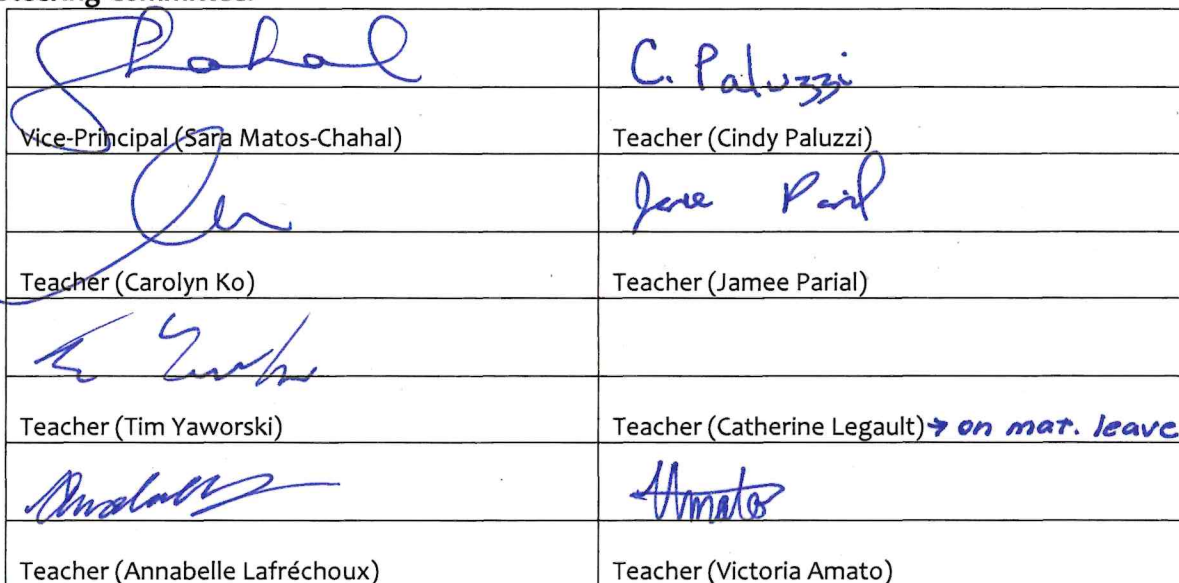 Chahal C. Paluzzi
Vice-Principal (Sara Matos-Chahal) Teacher (Cindy Paluzzi)
Teacher (Carolyn Ko) Teacher (Jamee Parial)
Teacher (Tim Yaworski) Teacher (Catherine Legault) → on mat. leave
Amato
Teacher (Annabelle Lafréchoux) Teacher (Victoria Amato)